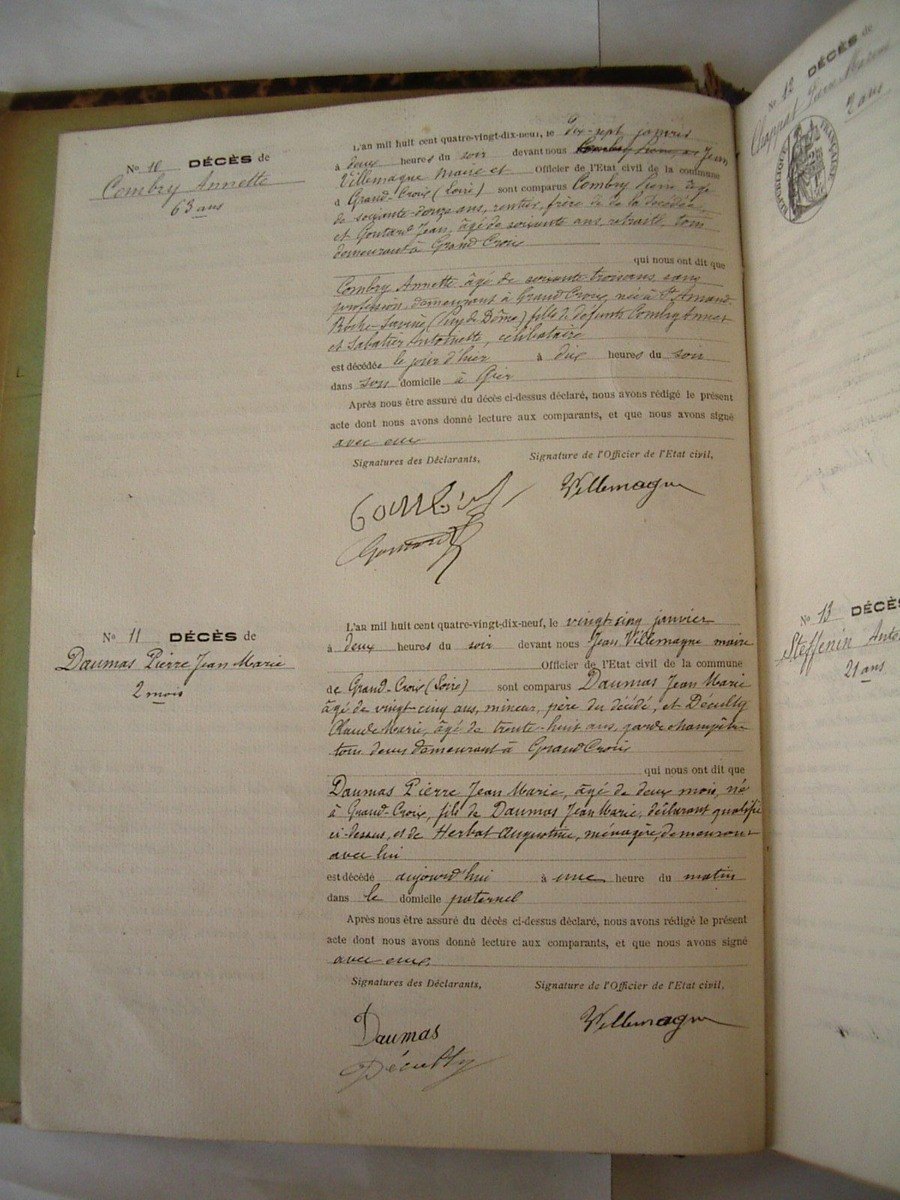 No 10 DÉCÈS de
Combry Annette
63 ans
L'an mil huit cent quatre-vingt-dix-neuf, le dix-sept janvier
à deux heures du soir devant nous Jean
Villemagne Maire et Officier de l'Etat civil de la commune
d Grand-Croix (Loire) sont comparus Combry Pierre âgé
de soixante-douze ans, rentier, frère de la décédée,
et Goutard Jean, âgé de soixante ans, retraité, tous
demeurant à Grand Croix
qui nous ont dit que
Combry Annette âgé de soixante-trois ans, sans
profession, demeurant à Grand Croix, née à St Amand
Roche-Savine (Puy de Dôme) fille de défunts Combry Annet
et Sabatier Antoinette, célibataire
est décédée le jour d'hier à dix heures du soir
dans son domicile à Gier
Après nous être assuré du décès ci-dessus déclaré, nous avons rédigé le présent
acte dont nous avons donné lecture aux comparants, et que nous avons signé
avec eux
Signatures des Déclarants, Signature de l'Officier de l'Etat civil,
Villemagne
Goutard
No 11 DÉCÈS de
Daumas Pierre Jean Marie
2 mois
L'an mil huit cent quatre-vingt-dix-neuf, le vingt-cinq janvier
à deux heures du soir devant nous Jean Villemagne maire
Officier de l'Etat civil de la commune
de Grand-Croix (Loire) sont comparus Daumas Jean Marie
âgé de vingt cinq ans, mineur, père du décédé, et Décully
Claude Marie, âgé de trente-huit ans, garde champêtre
tous deux demeurant à Grand Croix
qui nous ont dit que
Daumas Pierre Jean Marie, âgé de deux mois, né
à Grand-Croix, fils de Daumas Jean Marie, déclarant qualifié
ci-dessus, et de Herbat Augustine, ménagère, demeurant
avec lui
est décédé aujourd'hui à une heure du matin
dans le domicile paternel
Après nous être assuré du décès ci-dessus déclaré, nous avons rédigé le présent
acte dont nous avons donné lecture aux comparants, et que nous avons signé
avec eux.
Signatures des Déclarants, Signature de l'Officier de l'Etat civil,
Daumas Villemagne
Décully
No 12 DÉCÈS de
2 ans
RÉPUBLIQUE FRANÇAISE
No 13 DÉCÈS
Steffenin Anto
21 ans